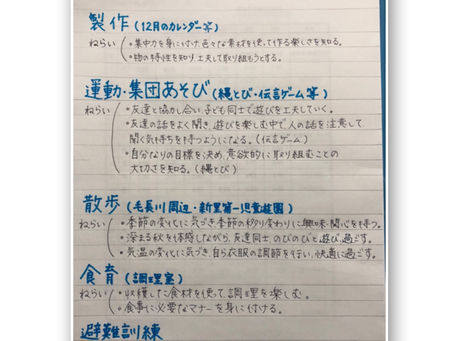 製作(12月のカレンダー等)
ねらい ・集中力を身に付け、色々な素材を使って作る楽しさを知る。
・物の特性を知り、工夫して取り組もうとする。
運動・集団あそび(縄とび・伝言ゲーム等)
ねらい ・友達と協力し合い、子ども同士で遊びを工夫していく。
・友達の話をよく聞き、遊びを楽しむ中で人の話を注意して
聞く気持ちを持つようになる。(伝言ゲーム)
・自分なりの目標を決め、意欲的に取り組むことの
大切さを知る。(縄とび)
散歩(毛長川周辺・新里第一児童遊園)
ねらい ・季節の変化に気づき、季節の移り変わりに興味・関心を持つ。
・深まる秋を体感しながら、友達同士のびのびと遊び、過ごす。
・気温の変化に気づき、自ら衣服の調節を行い、快適に過ごす。
食育(調理室)
ねらい ・収穫した食材を使って、調理を楽しむ。
・食事に必要なマナーを身に付ける。
避難訓練